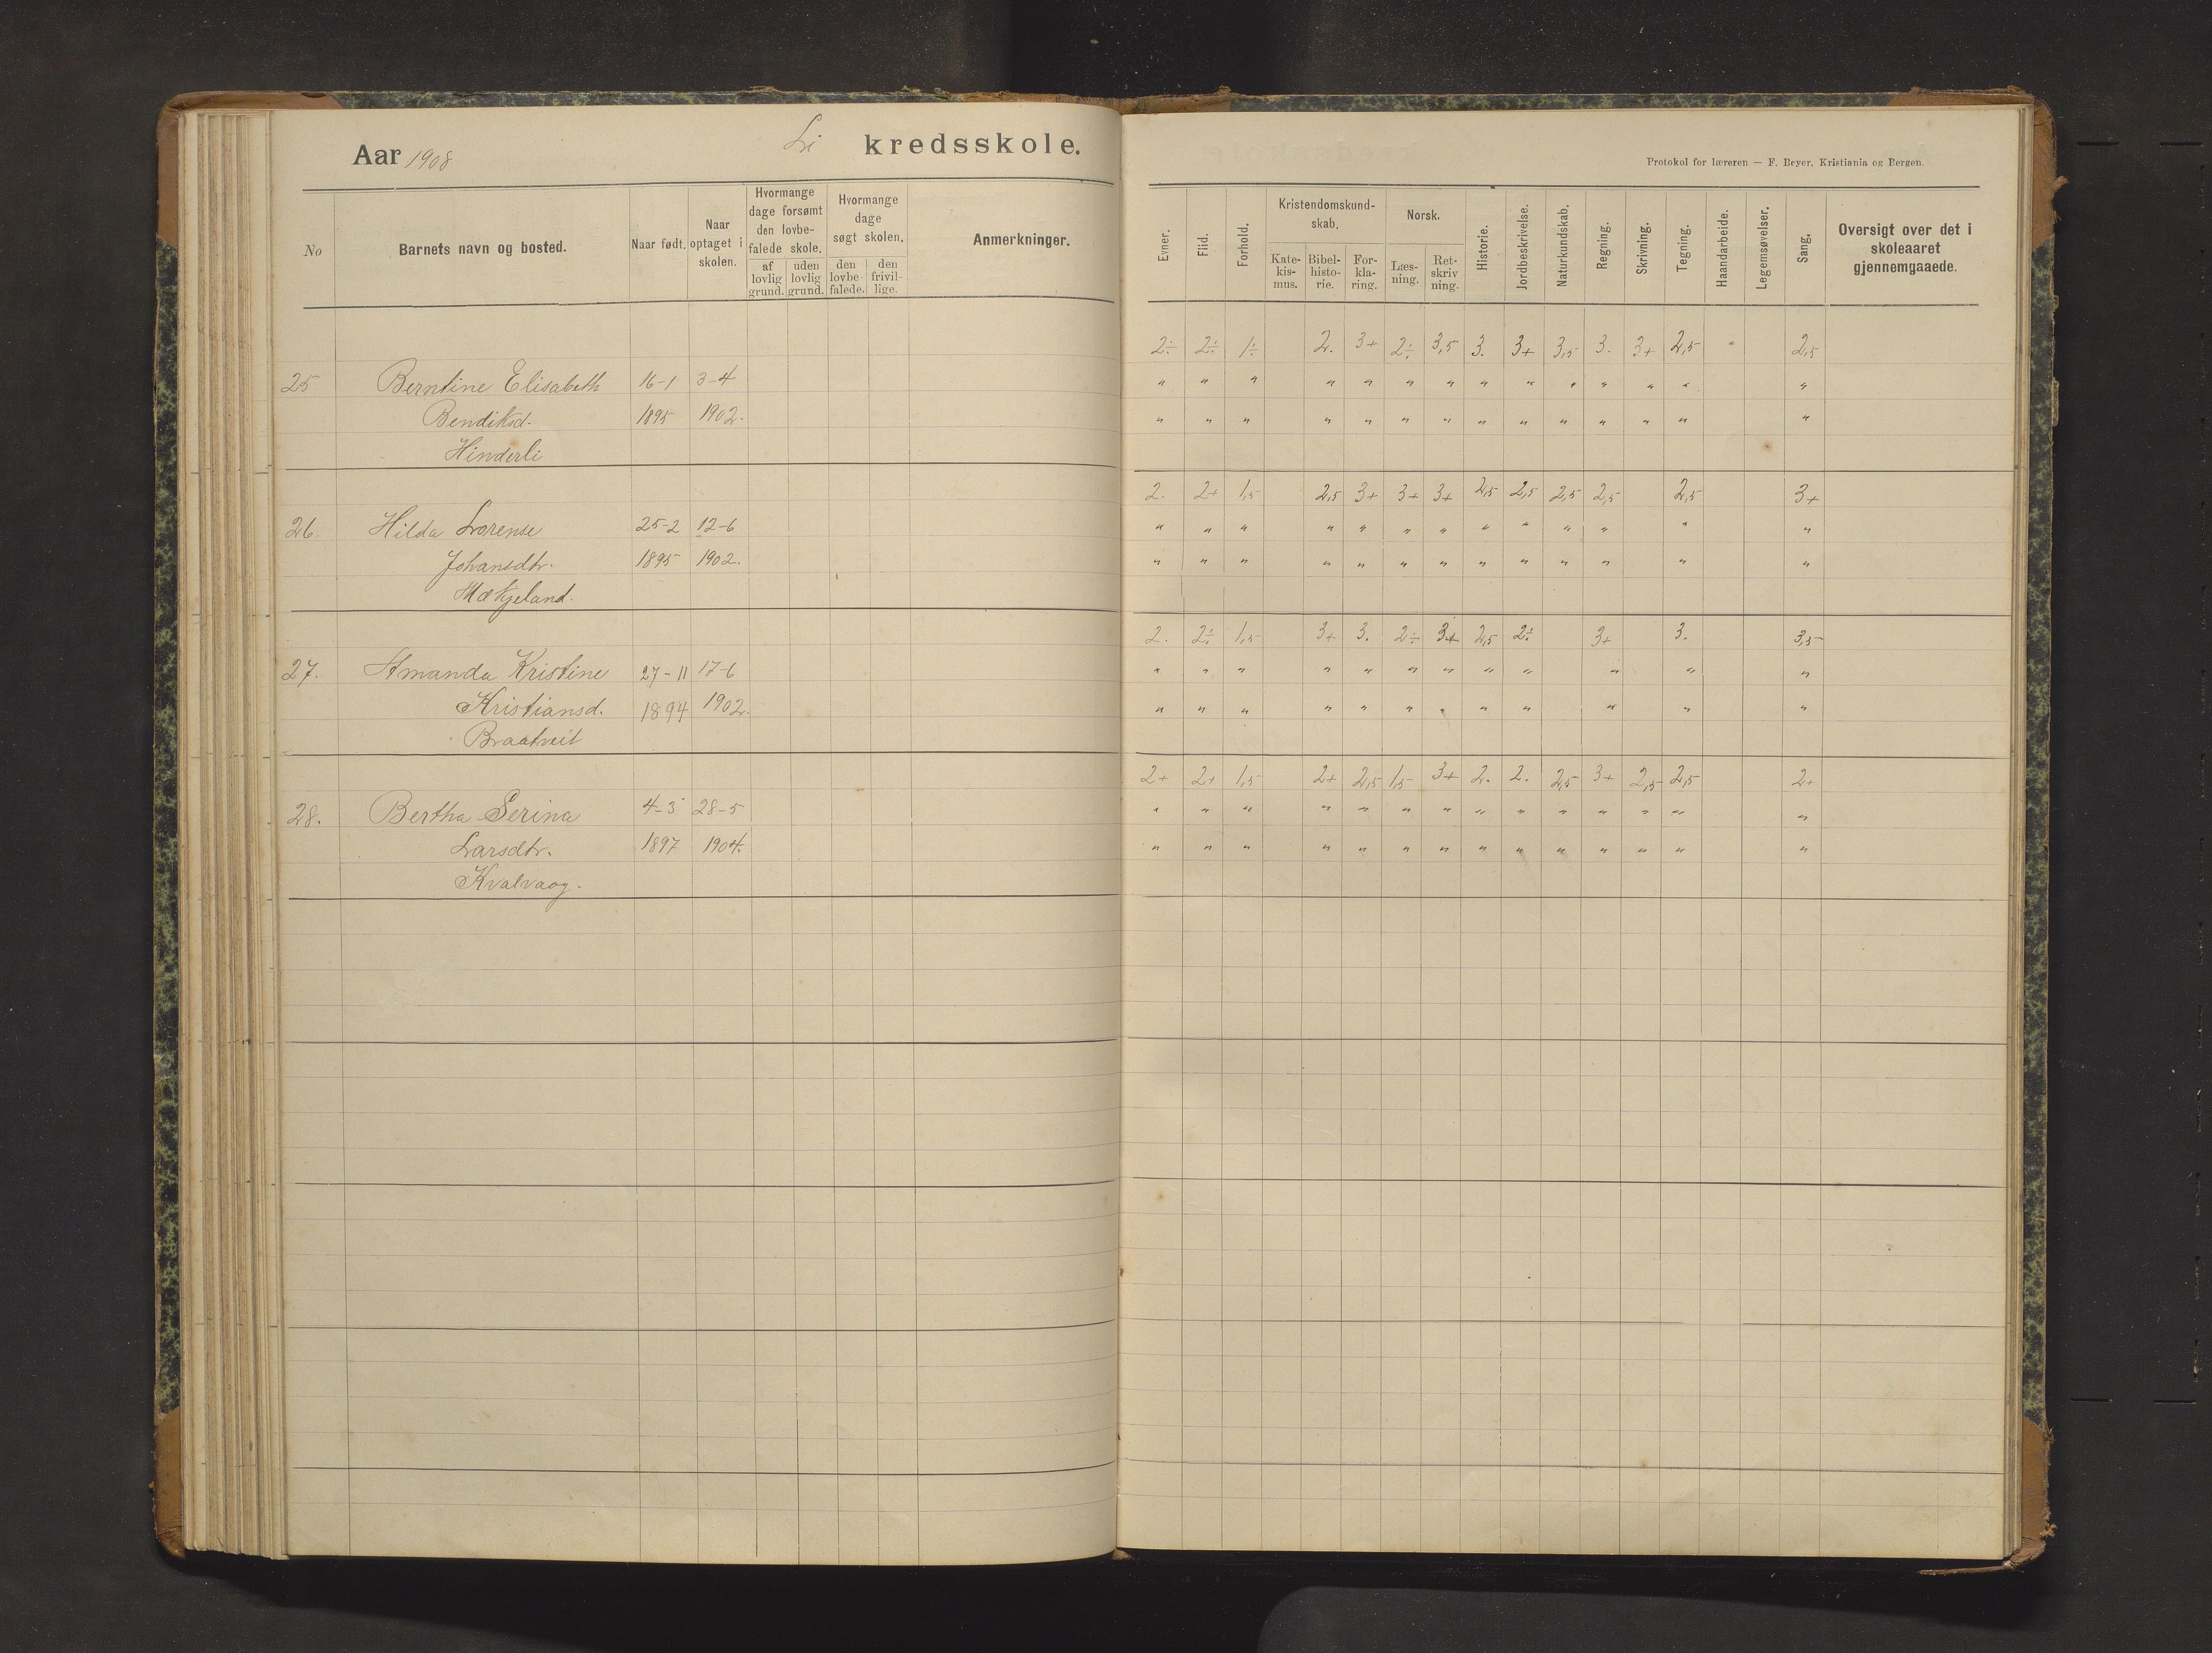 Aar 1908 Li kredsskole.
Protokol for læreren — F. Beyer, Kristiania og Bergen.
No Barnets navn og bosted. Naar født. Naar optaget i skolen. Hvormange dage forsømt den lovbe- falede skole. af lovlig grund. uden lovlig grund. Hvormange dage søgt skolen. den lovbe- falede. den frivil- lige. Anmerkninger.
Evner. Flid. Forhold. Kristendomskund- skab. Kate- kis- mus. Bibel- histo- rie. For- kla- ring. Norsk. Læs- ning. Ret- skriv ning. Historie. Jordbeskrivelse. Naturkundskab. Regning. Skrivning. Tegning. Haandarbeide. Legemsøvelser. Sang. Oversigt over det i skoleaaret gjennemgaaede.
2÷ 2÷ 1÷ 2. 3+ 2÷ 3,5 3. 3+ 3,5 3. 3+ 2,5 2,5
25 Berntine Elisabeth 16-1 3-4 " " " " " " " " " " " " " "
Bendiksd. 1895 1902. " " " " " " " " " " " " " "
Hinderli
2. 2+ 1,5 2,5 3+ 3+ 3+ 2,5 2,5 2,5 2,5 2,5 3+
26. Hilda Lorense 25-2 12-6 " " " " " " " " " " " " "
Johansdtr. 1895 1902. " " " " " " " " " " " " "
Mækjeland.
2. 2÷ 1,5 3+ 3. 2÷ 3+ 2,5 2÷ 3+ 3. 3,5
27. Amanda Kristine 27-11 17-6 " " " " " " " " " " " "
Kristiansd. 1894 1902. " " " " " " " " " " " "
Braatveit
2+ 2+ 1,5 2+ 2,5 1,5 3+ 2. 2. 2,5 3+ 2,5 2,5 2+
28. Bertha Serina 4-3 28-5 " " " " " " " " " " " " " "
Larsdtr. 1897 1904. " " " " " " " " " " " " " "
Kvalvaag.